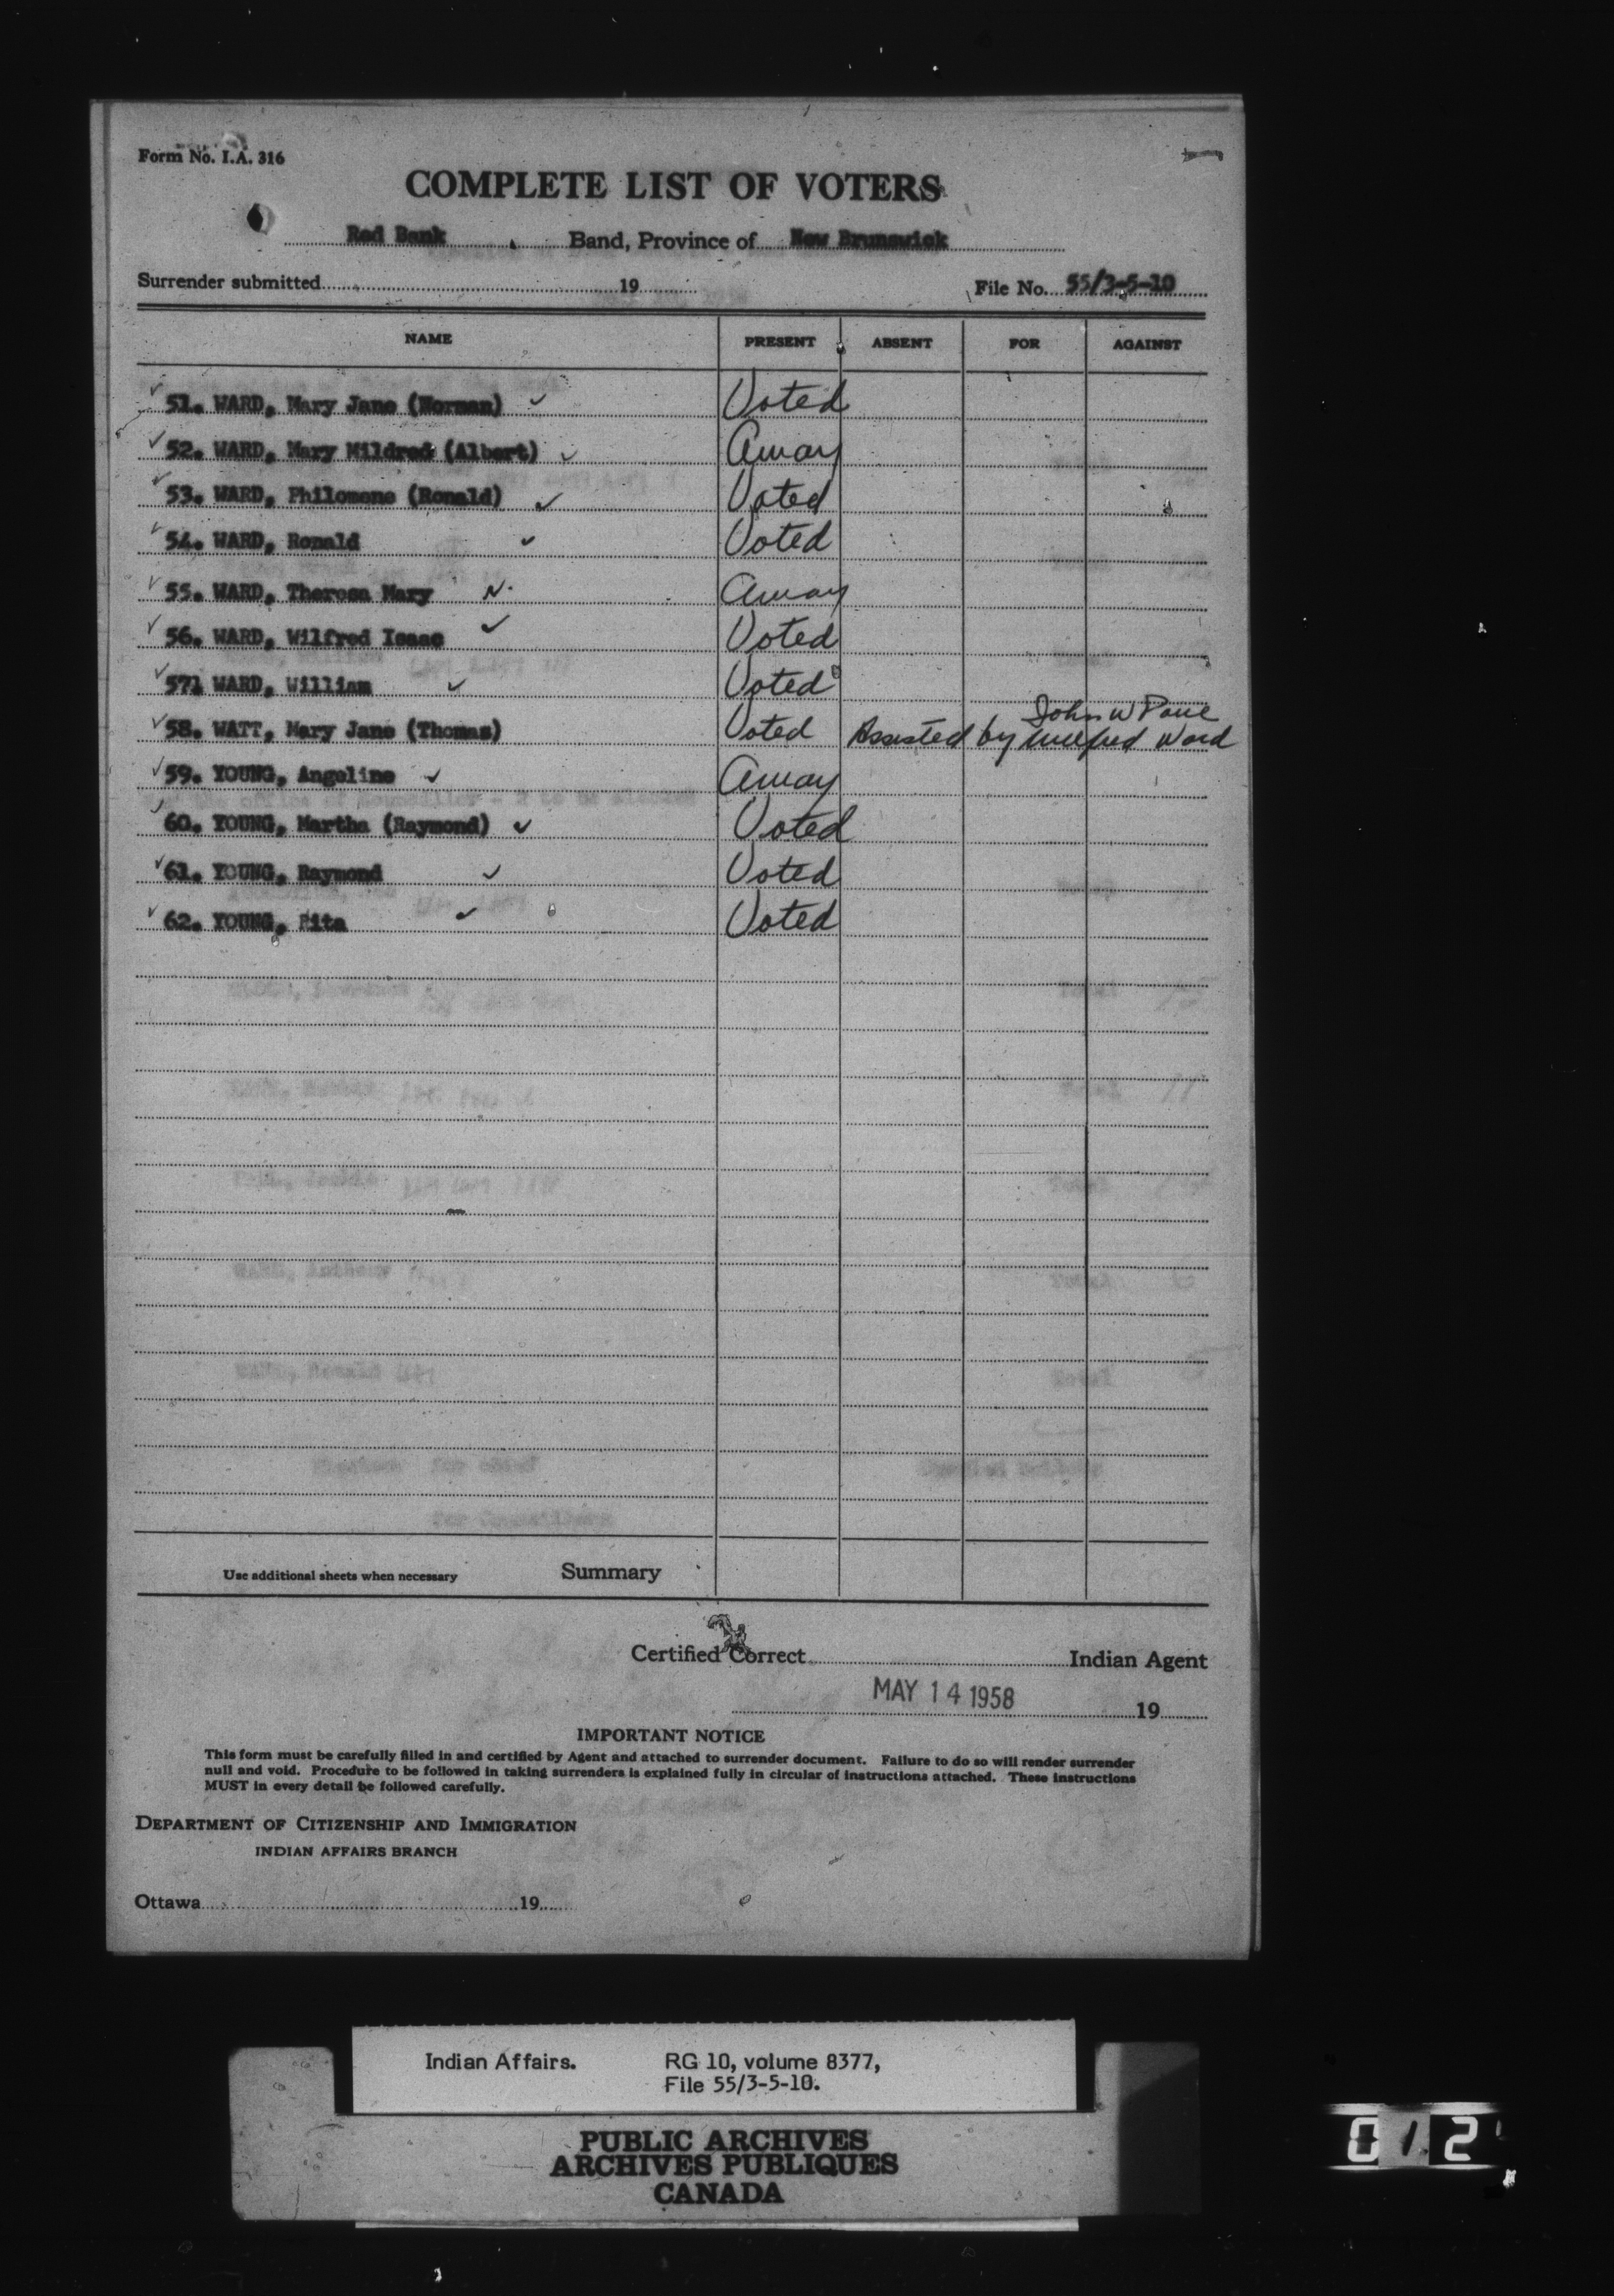 Form No. I.A. 316
COMPLETE LIST OF VOTERS
Red Bank Band, Province of New Brunswick
Surrender submitted 19 File No. 55/3-5-10
NAME PRESENT ABSENT FOR AGAINST
✓ 51. WARD, Mary Jane (Norman) ✓ Voted
✓ 52. WARD, Mary Mildred (Albert) ✓ Away
✓ 53. WARD, Philomene (Ronald) ✓ Voted
✓ 54. WARD, Ronald ✓ Voted
✓ 55. WARD, Theresa Mary N. Away
✓ 56. WARD, Wilfred Isaac ✓ Voted
✓ 571 WARD, William ✓ Voted
John W Paul
✓ 58. WATT, Mary Jane (Thomas) Voted Assisted by Wilfred Ward
✓ 59. YOUNG, Angeline ✓ Away
✓ 60. YOUNG, Martha (Raymond) ✓ Voted
✓ 61. YOUNG, Raymond ✓ Voted
✓ 62. YOUNG, Rita ✓ Voted
Use additional sheets when necessary Summary
Certified Correct Indian Agent
MAY 14 1958 19
IMPORTANT NOTICE
This form must be carefully filled in and certified by Agent and attached to surrender document. Failure to do so will render surrender
null and void. Procedure to be followed in taking surrenders is explained fully in circular of instructions attached. These instructions
MUST in every detail be followed carefully.
DEPARTMENT OF CITIZENSHIP AND IMMIGRATION
INDIAN AFFAIRS BRANCH
Ottawa 19
Indian Affairs. RG 10, volume 8377,
File 55/3-5-10.
PUBLIC ARCHIVES
ARCHIVES PUBLIQUES
CANADA
012